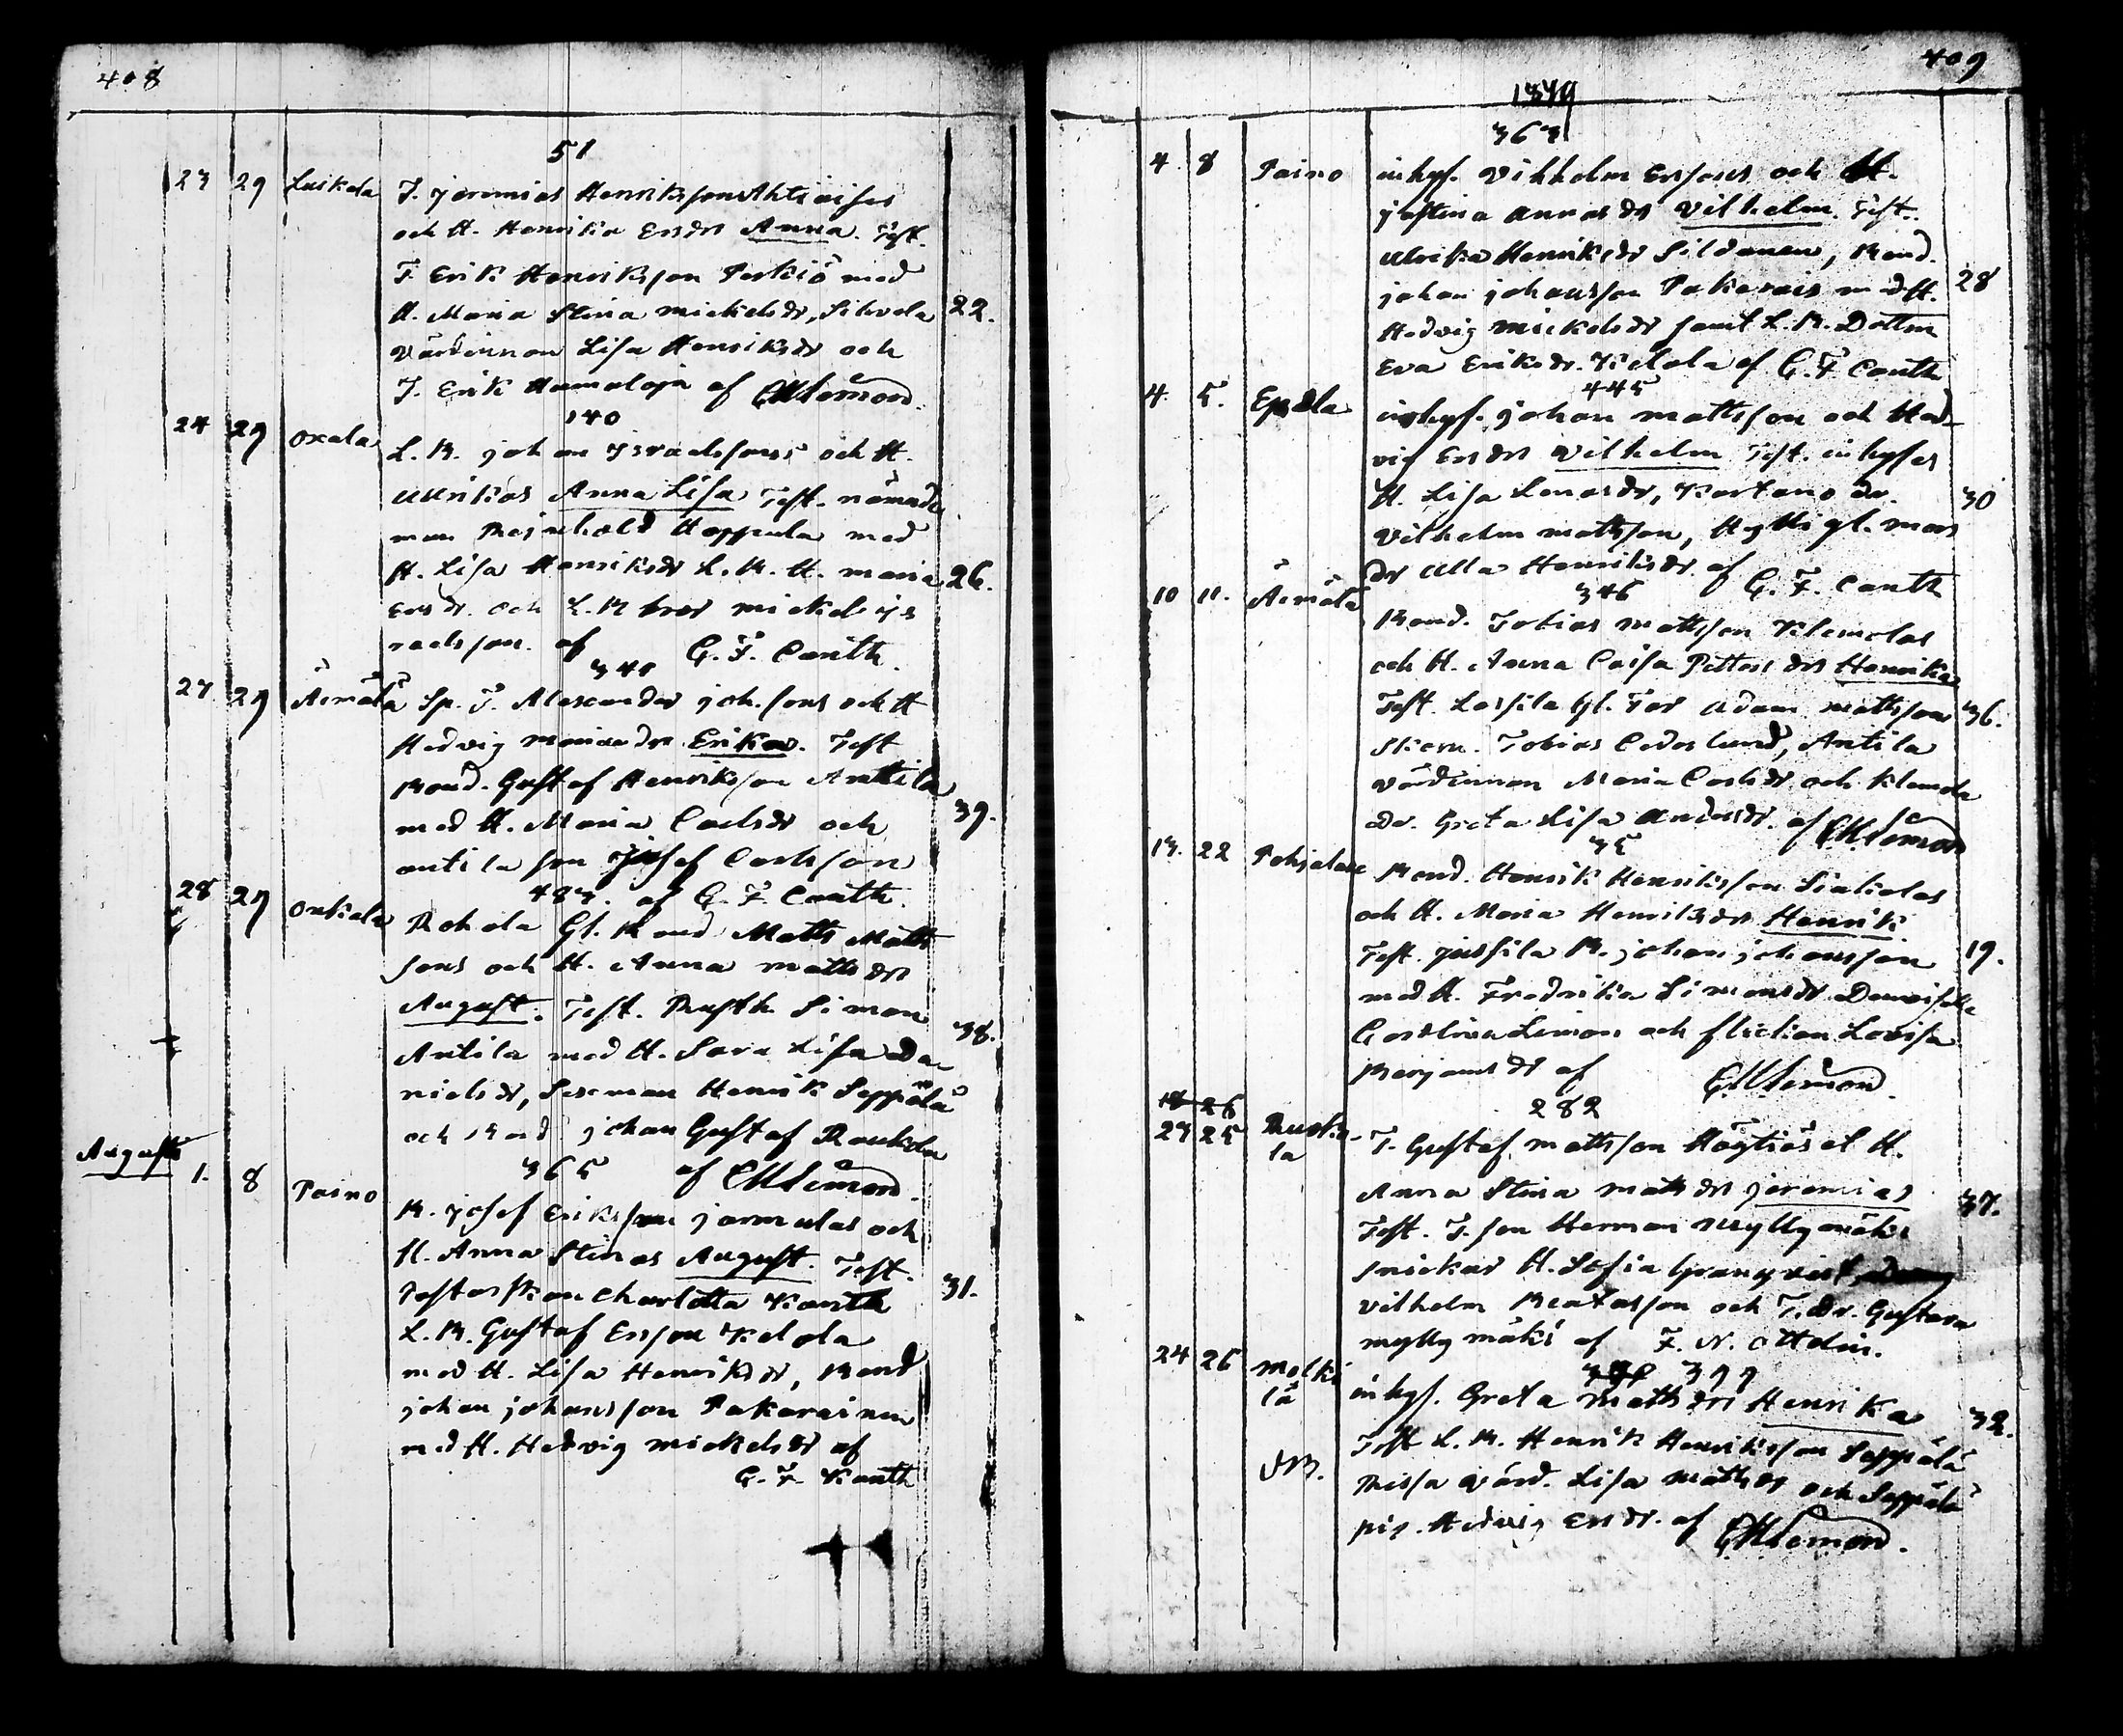 408
51
23 29 Luikala J. Jeremias Henriksson Ahtiaises
och H. Henrika Ersdrs Anna. Test.
T. Erik Henriksson Perkiö med
H. Maria Stina Mickelsdr, Sihvola 22.
Värdinnan Lisa Henriksdr och
J. Erik Humaloja af
140
24 29 Oxala L. B. Johan Israelssons och H.
Ulrikas Anna Lisa Test. nämnde
man Reinhold Hoppula med
H. Lisa Henriksdr L. B. H. Maria 26.
Ersdr. och L. B bror Mickel Is
raelsson. af G. F. Canth.
340
27 29 Äimälä Sp. T. Alexander Joh.sons och H
Hedvig Mariaedrs Erika. Test
Bond. Gustaf Henriksson Anttila
med H. Maria Carlsdr och 39.
Antila son Josef Carlsson
af G. F. Canth.
28 29 Onkala Rokola Gl. Bond Matts Matts
sons och H. Anna Mattsdrs
August. Test. Rusth. Simon
Antila med H. Sara Lisa Da 38.
nielsdr, Sexman Henrik Seppälä
och Bond Johan Gustaf Raukola
365 af
Augusti 1. 8 Paino B. Josef Eriksson Jarmulas och
H. Anna Stinas August. Test.
Pastorskan Charlotta Kanth 31.
L. B. Gustaf Ersson Kelola
med H. Lisa Henriksdr, Bond
Johan Johansson Pakarainen
med H. Hedvig Mickelsdr af
G. F. Kanth
409
1849
363
4 8 Paino inhys. Vilhelm Erssons och H.
Justina Annasdrs Vilhelm. Test.
Ulrika Henriksdr Sildanen, Bond.
Johan Johansson Pakarais med H. 28
Hedvig Mickelsdr samt L. B. Dottren
Eva Eriksdr. Kelola af G. F. Canth
445
4. 5. inhys. Johan Mattsson och Hed-
vig Ersdrs Vilhelm Test. inhyses
H. Lisa Lenasdr, Kartano dr. 30
Vilhelm Mattsson, Hyttigl. mors
dr Ulla Henriksdr. af G. F. Canth
346
10 11. Äimälä Bond. Tobias Mattsson Klemolas
och H. Anna Caisa Pettersdrs Henrika
Test. Lassila Gl. Far Adam Mattsson 36.
Skom. Tobias Cederlund, Antila
Värdinnan Maria Carlsdr och Klemola
Dr. Greta Lisa Andersdr. af
35
13. 22 Bond. Henrik Henriksson Sinkolas
och H. Maria Henriksdrs Henrik
Test. Jussila B. Johan Johansson 19.
med H. Fredrika Simonsdr Demoiselle
Carolina Limon och flickan Lovisa
Benjamsdr af
18 26
282
23 25 Ruski-
la T. Gustaf Mattsson Högtiös et H.
Anna Stina Matsdrs Jeremias 37.
Test. T. son Herman Myllymäki
Snickar H. Sofia Granqvist
Vilhelm Beatasson och T. Dr. Gustava
Myllymäki af F. N. Ottelin.
399
24 26 Melki
lä inhys. Greta Mattsdrs Henrika
Test L. B. Henrik Henriksson Seppälä 32.
NB. Rissa Värd. Lisa Mattsdr och Seppälä
pig. Hedvig Ersdr. af